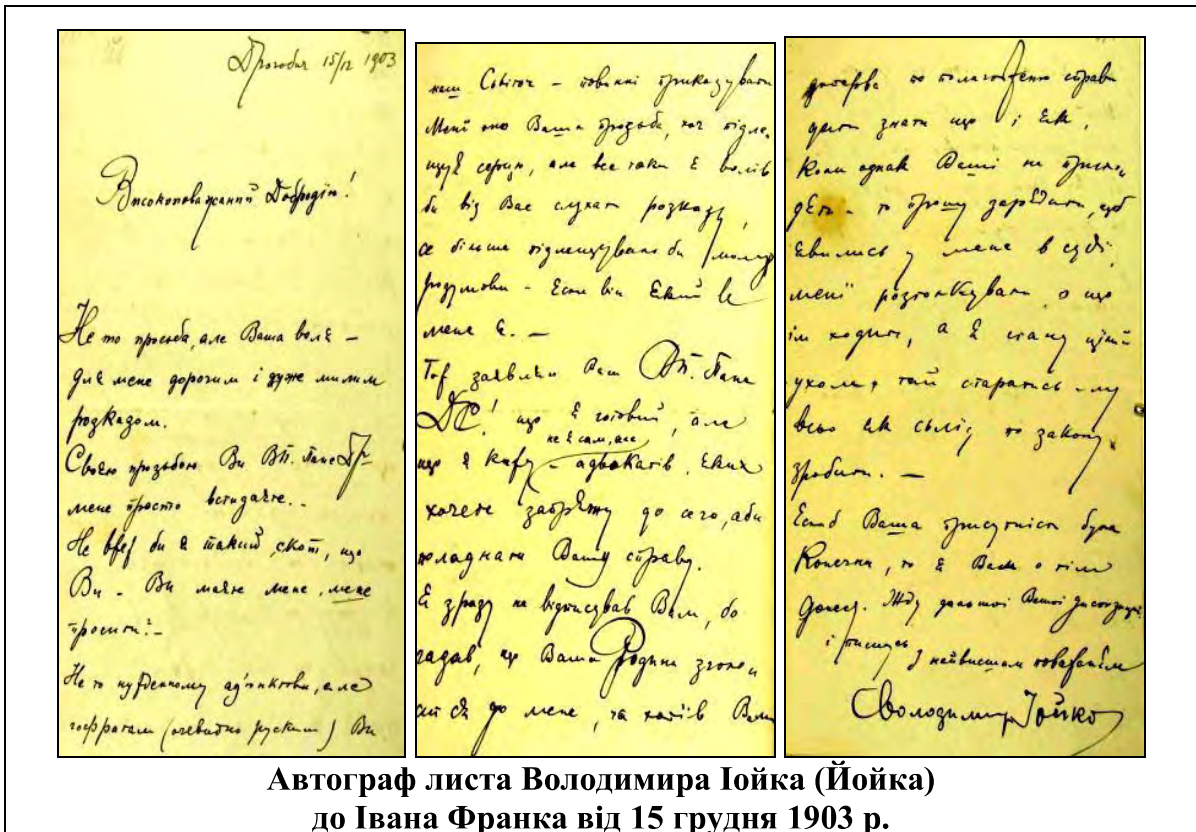 Дрогобич 15/12 1903
Високоповажаний Добродію!
Не то просьба, але Ваша воля –
для мене дорогим і дуже милим
розказом.
Своєю прозьбою Ви ВП. Пане Др
мене просто встидаєте..
Не вже ж би я такий скот, що
Ви – Ви маєте мене, мене
просити? –
Не то нужденному ад'юнктови, але
гофратам (очевидно руским) Ви
наш Світоч – повинні приказувати
Мені она Ваша прозьба, хоч підле-
щує серцю, але все таки я волів
би від Вас слухати розказу,
се більше підлещувало би моєму
розумови – Если він який в
мене є. –
Тож заявляю Вам ВП. Пане
що я готовий, але
не я сам, але
що я – адвокатів, яких
хочете запряжу до сего, аби
поладнати Вашу справу.
Я зразу не відписував Вам, бо
гадав, що Ваша Родина
ся до мене, та хотів Вам
по полагодженю справи
дати знати що і як.
Коли однак Ваші не прихо-
дять – то прошу зарядити, щоб
явились у мене в суді,
мені розтолкували о що
їм ходить, а я стану цілий
ухом, тай старатись му
всьо як слід по закону
зробити. –
Если б Ваша присутність була
Конечна, то я Вам о тім
донесу. Жду дальшої Вашої
і пишусь з найвисшим поважанєм
Володимир Іойко
Автограф листа Володимира Іойка (Йойка)
до Івана Франка від 15 грудня 1903 р.